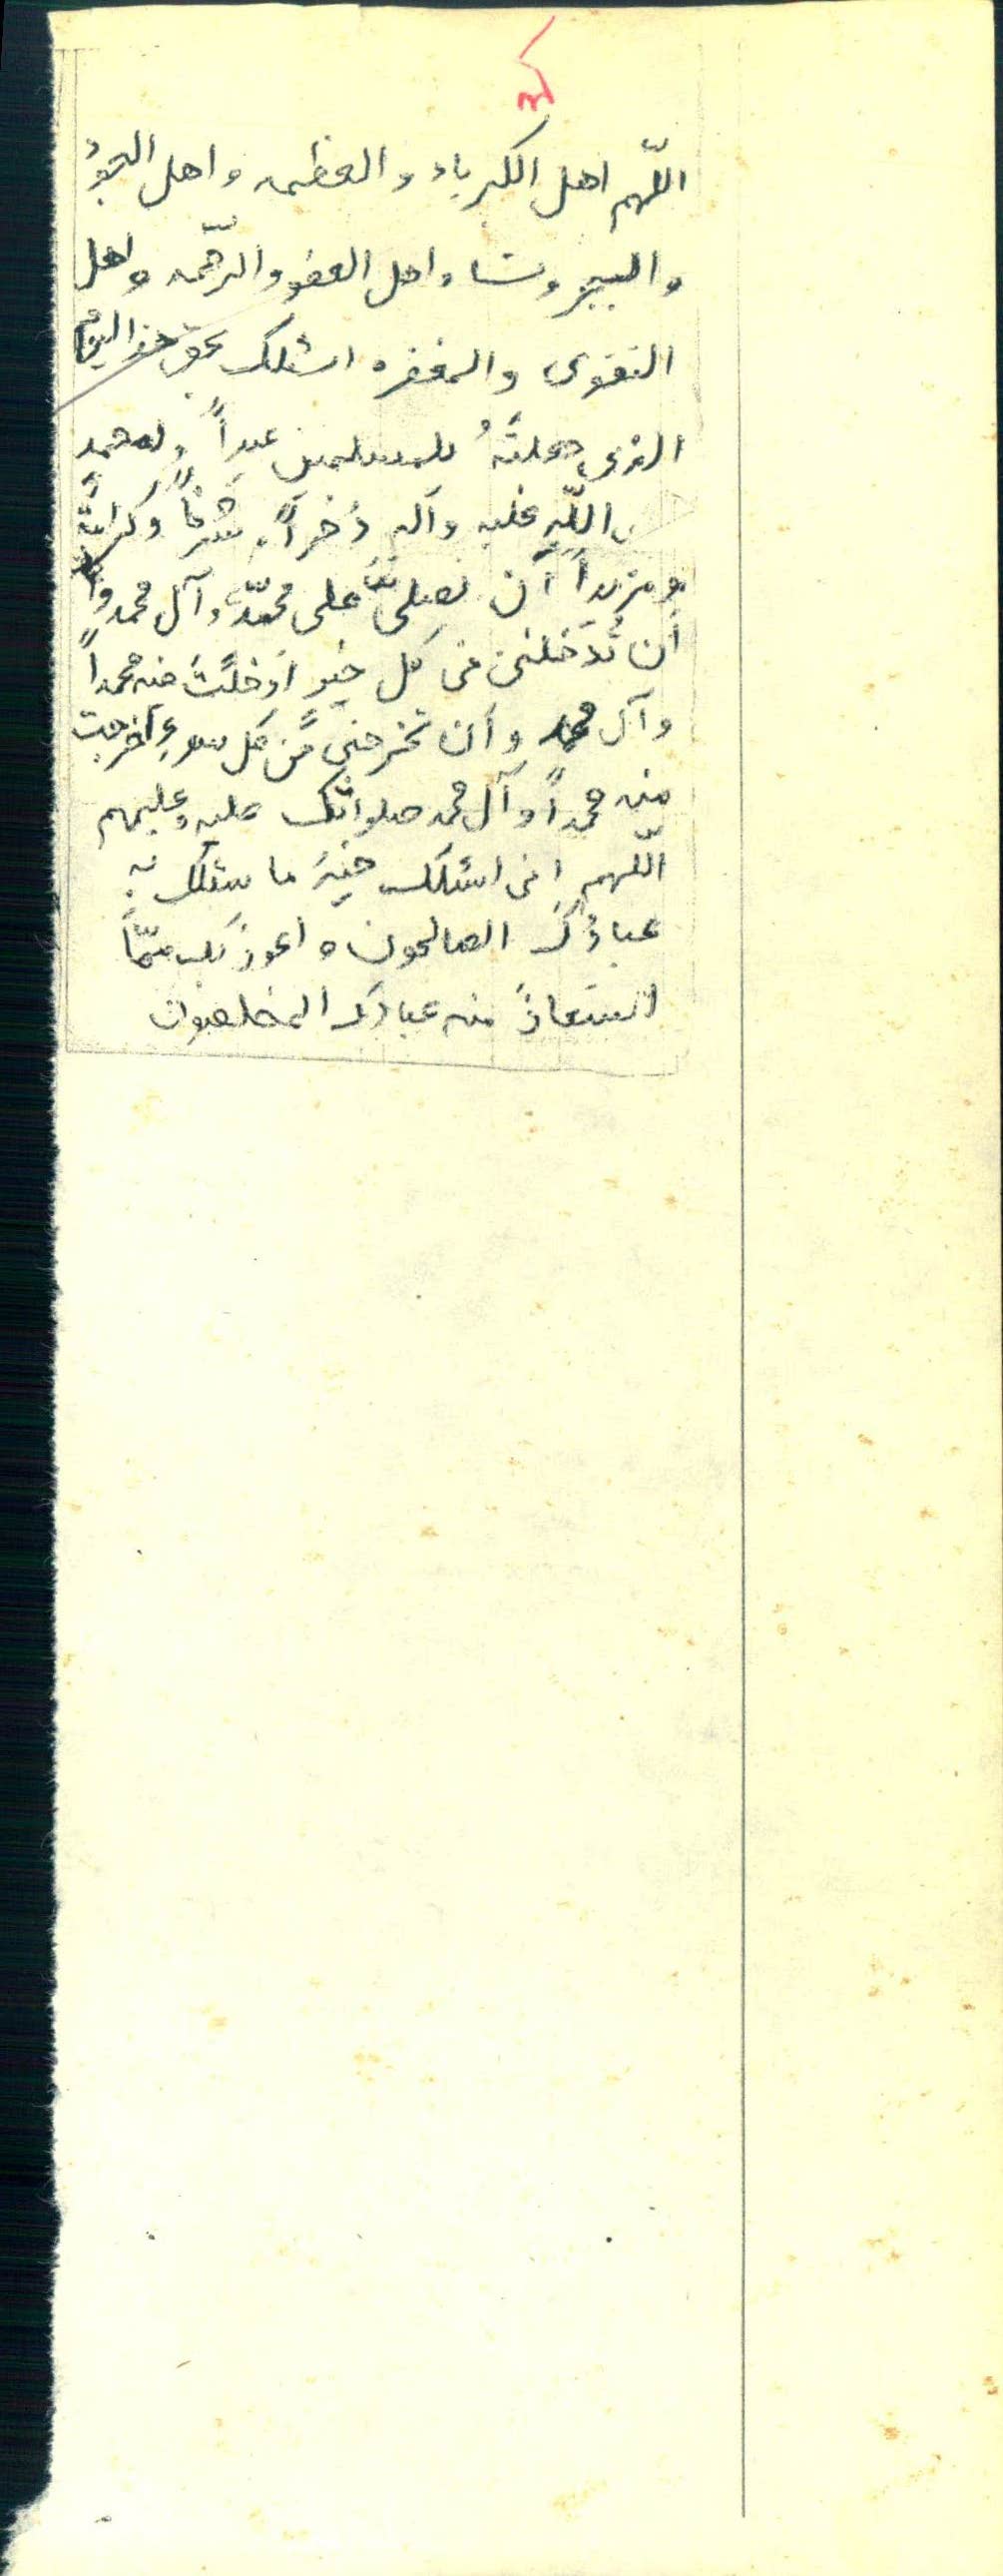 اللّهم اهل الكبرياء و العظمه و اهل الجودُ
و الجبروت و اهل العفو و الرحّمه و اهل
التقوى و المغفره اسئلک بحق هذا اليوم
الذى جعلتَهُ للمسلمين عيداً و لمحمدٍ
اللّه عليه و آله ذُخراً و شرفاً و كرامتةً
و مزيداً أن تصلىَّ على محمّد و آل محمد و
أن تُدخلنى فى كل خيرٍ ادخلتَ فيه محمداً
و آل محمد و أن تخرجنى من كل سوءٍ أخرجت
منه محمداً و آل محمد صلواتک عليه و عليهم
اللّهم انى اسئلک خيرَ ما سئلک به
عبادُکَ الصالحون و اعوذ بک ممّا
استعاذَ منه عبادک المخلصون